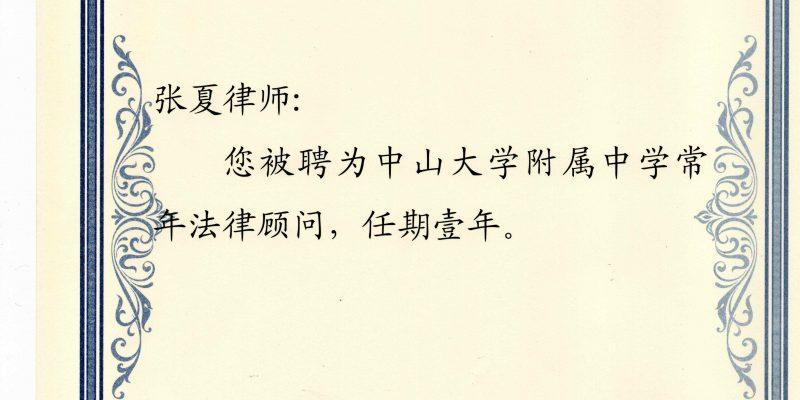 张夏律师:
您被聘为中山大学附属中学常
年法律顾问，任期壹年。